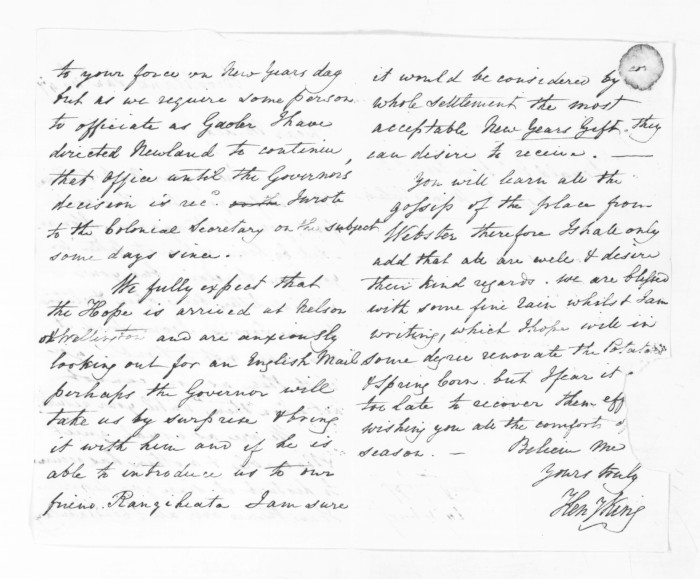 to your force on New Years day
but as we require some person
to officiate as Gaoler I have
directed Newland to continue
that Office until the Governors
decision is recd. on the I wrote
to the Colonial Secretary on the subject
some days since.
We fully expect that
the Hope is arrived at Nelson
or Wellington and are anxiously
looking out for an English Mail
perhaps the Governor will
take us by surprise & bring
it with him and if he is
able to introduce us to our
friend Rangiheata I am sure
it would be considered by
whole settlement the most
acceptable New Years Gift they
can desire to receive. —
You will learn all the
gossip of the place from
Webster therefore I shall only
add that all are well & desire
their kind regards. we are blessed
with some fine rain whilst I am
writing, which I hope will in
some degree renovate the Potatoes
& Spring Corn. but I fear it
too late to recover them eff
wishing you all the comforts of
season. — Believe me
Yours truly
Hen King